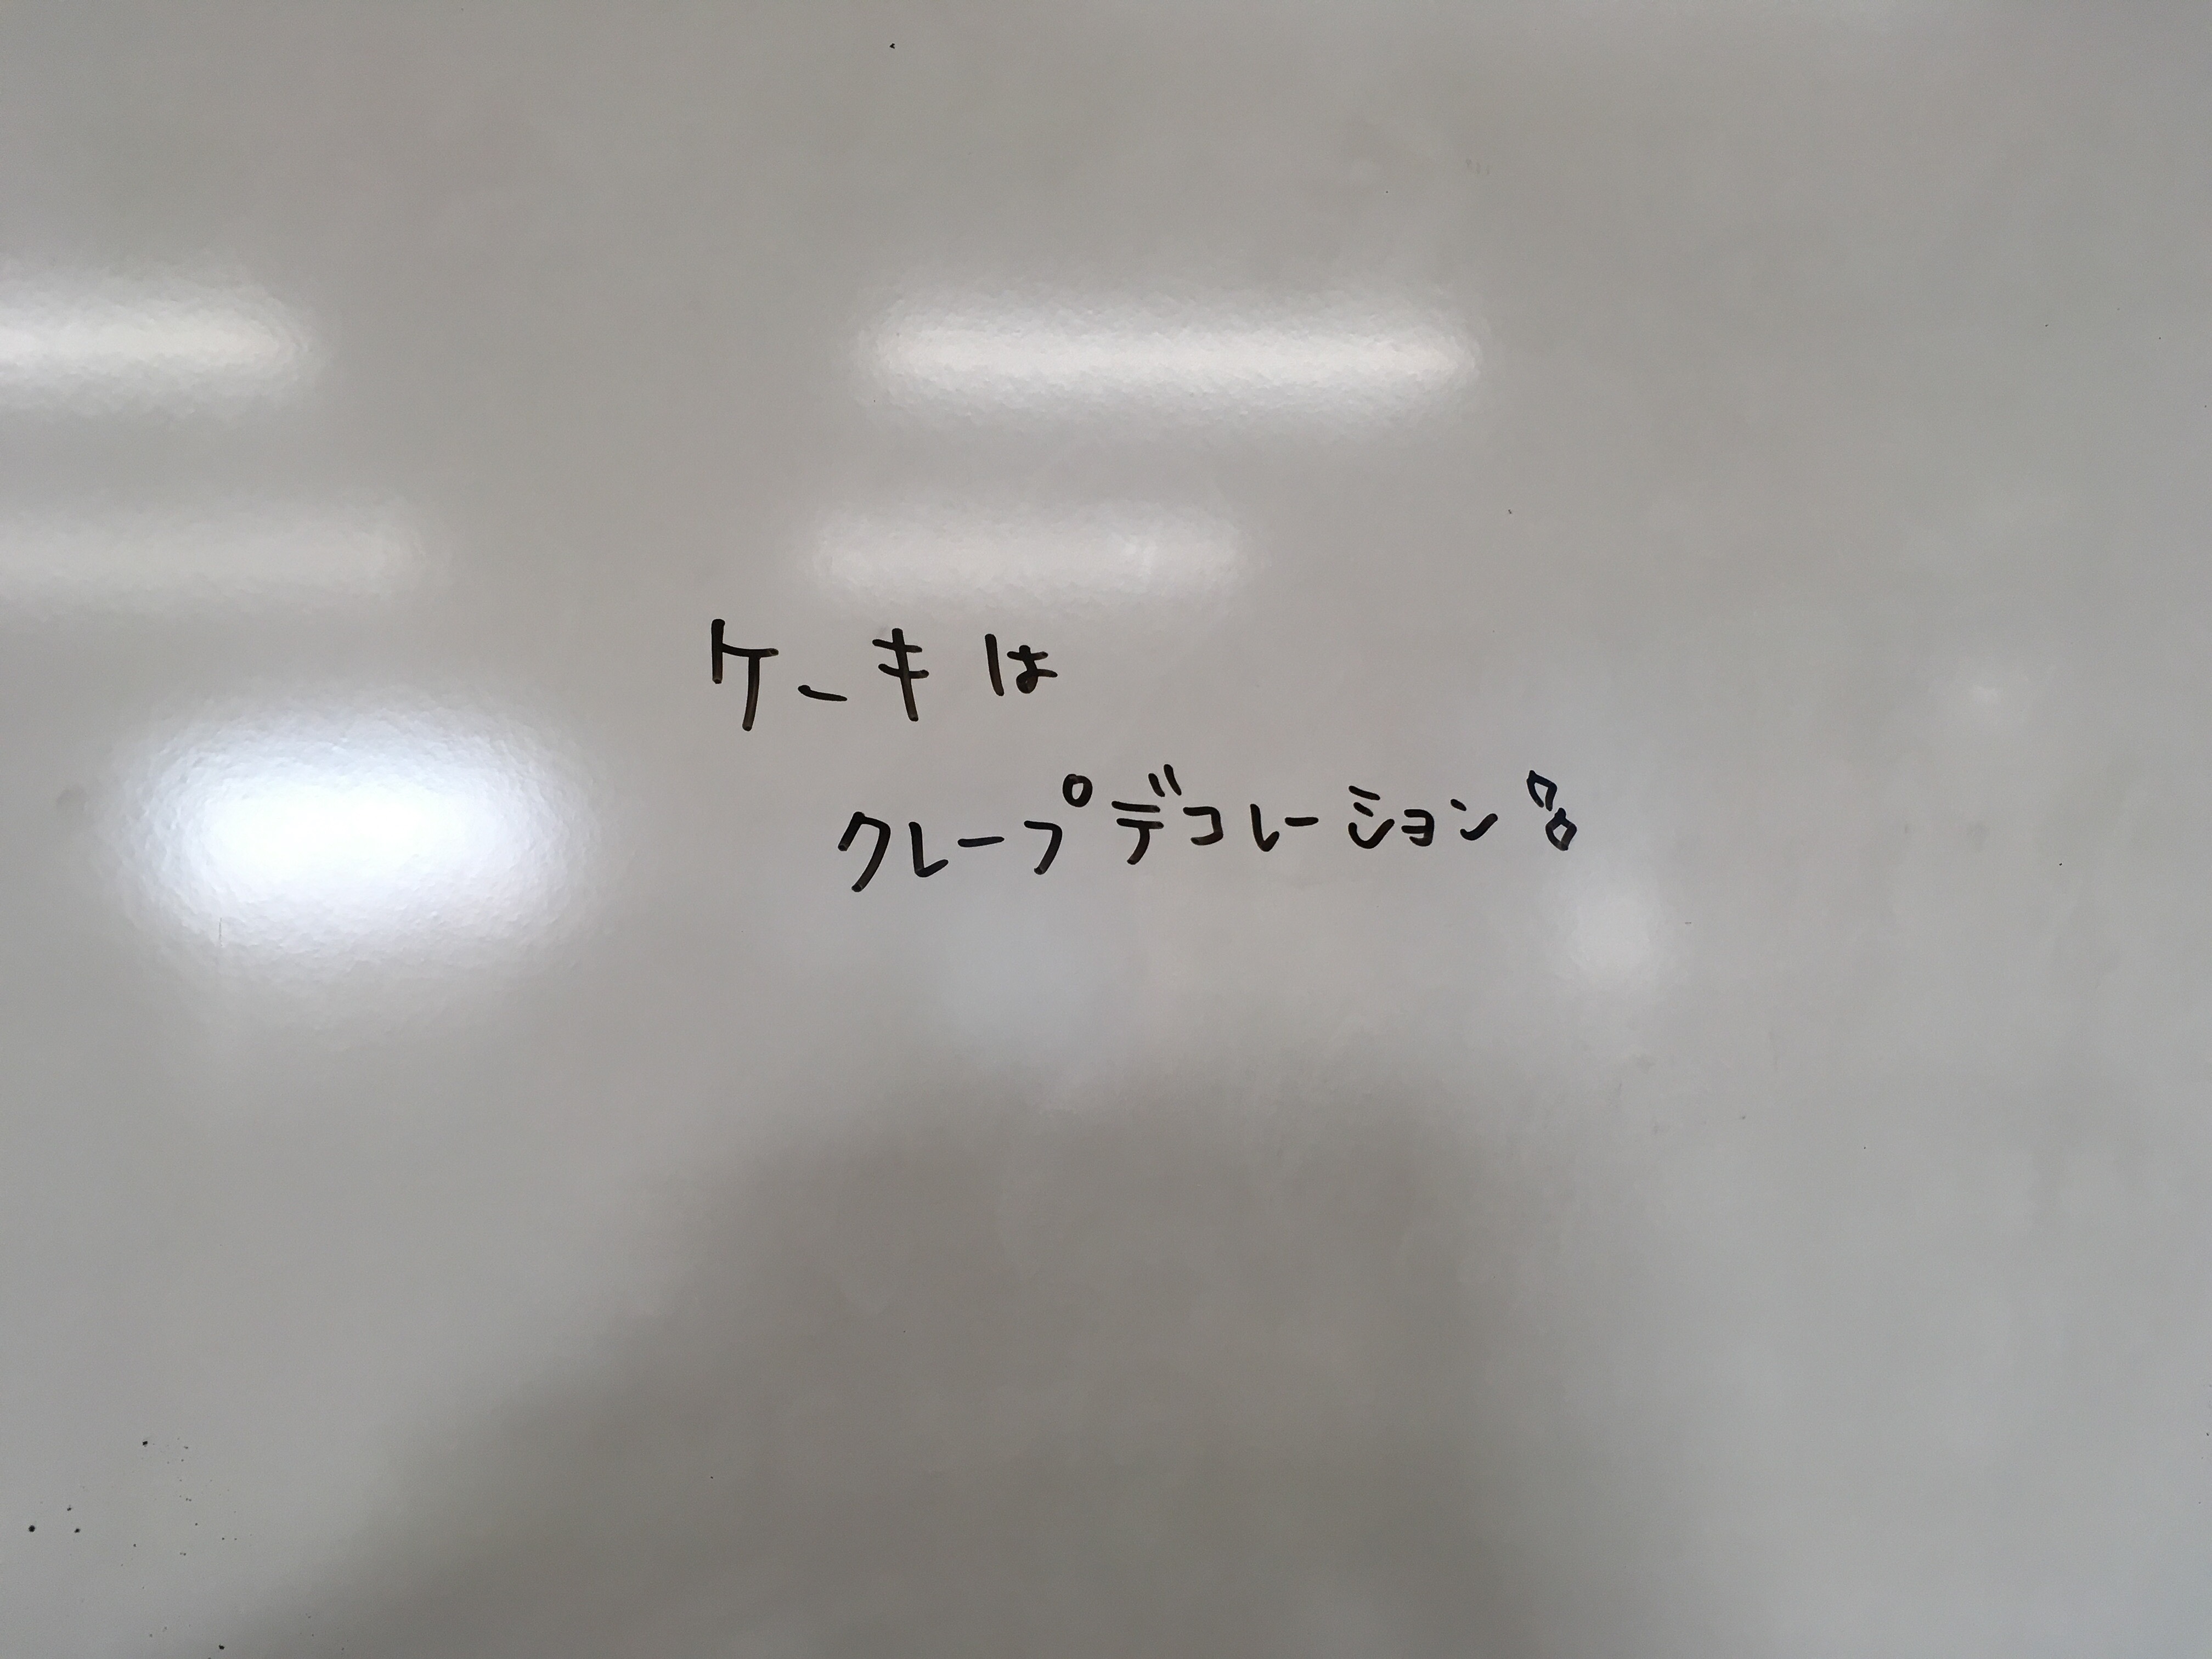 ケーキは
クレープデコレーション